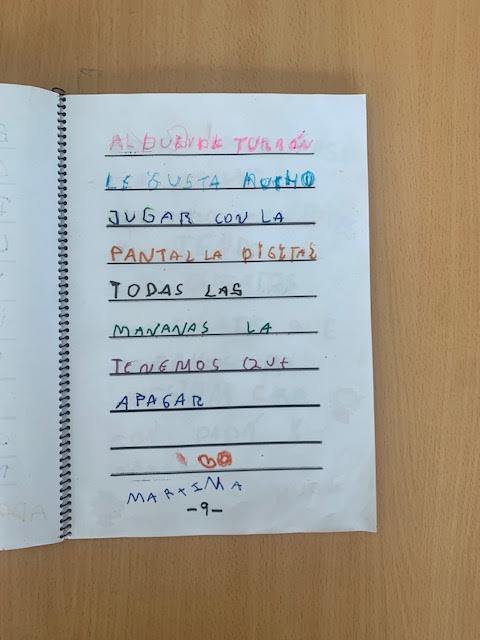 AL DUENDE TURRÓN
LE GUSTA MUCHO
JUGAR CON LA
PANTALLA DIGITAL
TODAS LAS
MANANAS LA
TENEMOS QUE
APAGAR
MARXIMA
-9-